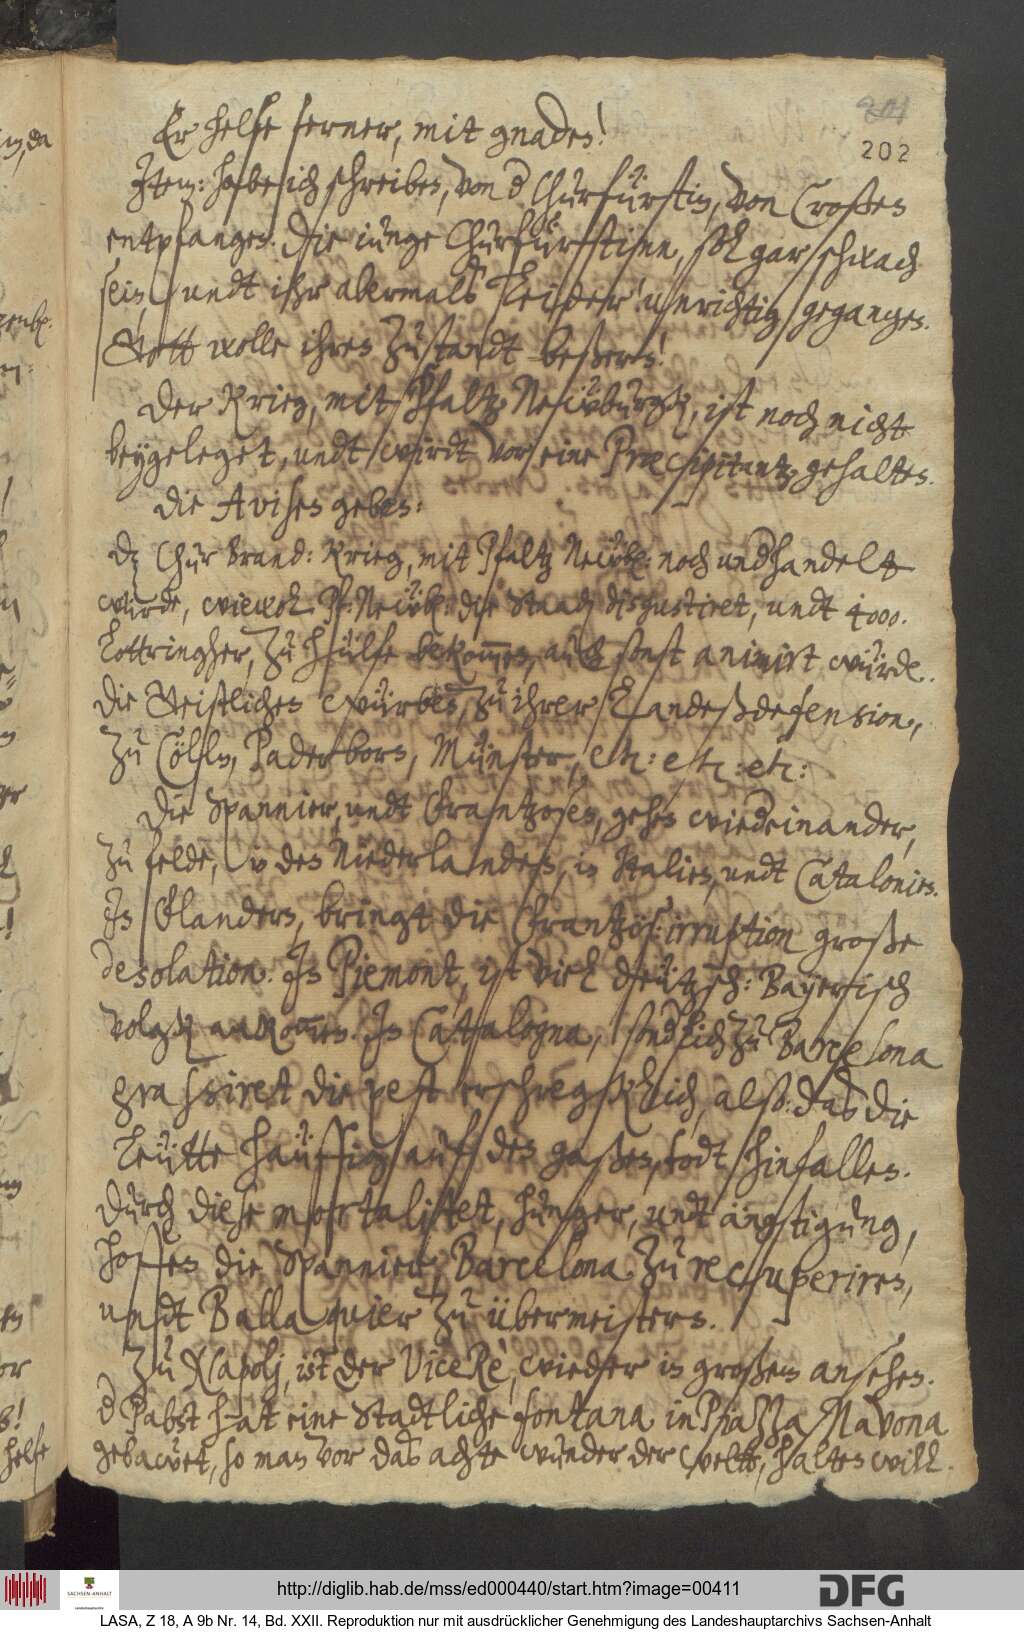 204
202
Er helfe ferner, mit gnaden!
Item: habe ich schreiben, von d Churfürstin, von Croßen
entpfangen. Die iunge Churfürstinn, soll gar schwach
sein, undt ihr abermals leider! unrichtig gegangen.
Gott wolle ihren zustandt beßern!
Der Krieg, mit Pfaltz Newburgk, ist noch nicht
beygeleget, undt wirdt vor eine Præcipitantz gehalten.
Die Avisen geben:
Dz Chur Brand: Krieg, mit Pfaltz Newb: noch undhandelt
würde, wiewol Pf: Newb: die Staadn disgustiret, undt 4000.
Lottringher, zu hülfe bekommen, auch sonst animirt würde.
Die Geistlichen würben, zu ihrer Landeßdefension,
zu Cölln, Paderborn, Münster, etc: etc: etc:
Die Spannier, undt Frantzosen, gehen wiedeinander,
zu felde, in den Niederlanden, in Italien, undt Catalonien.
In Flandern, bringt die Frantzös: irruption große
desolation. In Piemont, ist viel deützsch: Bayerisch
volgk ankommen. In Catalogna, sondlich zu Barcelona
grassiret die pest erschregklich, also: das die
Leütte haüffig auf den gaßen, todt hinfallen.
Durch diese mortalitet, hunger, undt ängstigung,
hoffen die Spannier, Barcelona zu recuperiren,
undt Ballaquier zu übermeistern.
Zu Napolj, ist der ViceRè, wieder in großem ansehen.
d Pabst hat eine Stadtliche fontana in Piazza Navona
gebawet, so man vor das achte wunder der weltt, halten will.
http://diglib.hab.de/mss/ed000440/start.htm?image=00411
DFG
SACHSEN-ANHALT
LASA, Z 18, A 9b Nr. 14, Bd. XXII. Reproduktion nur mit ausdrücklicher Genehmigung des Landeshauptarchivs Sachsen-Anhalt